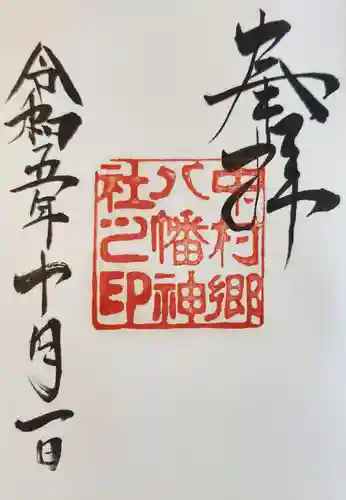 奉拝
田村郷
八幡神
社之印
令和五年十月一日